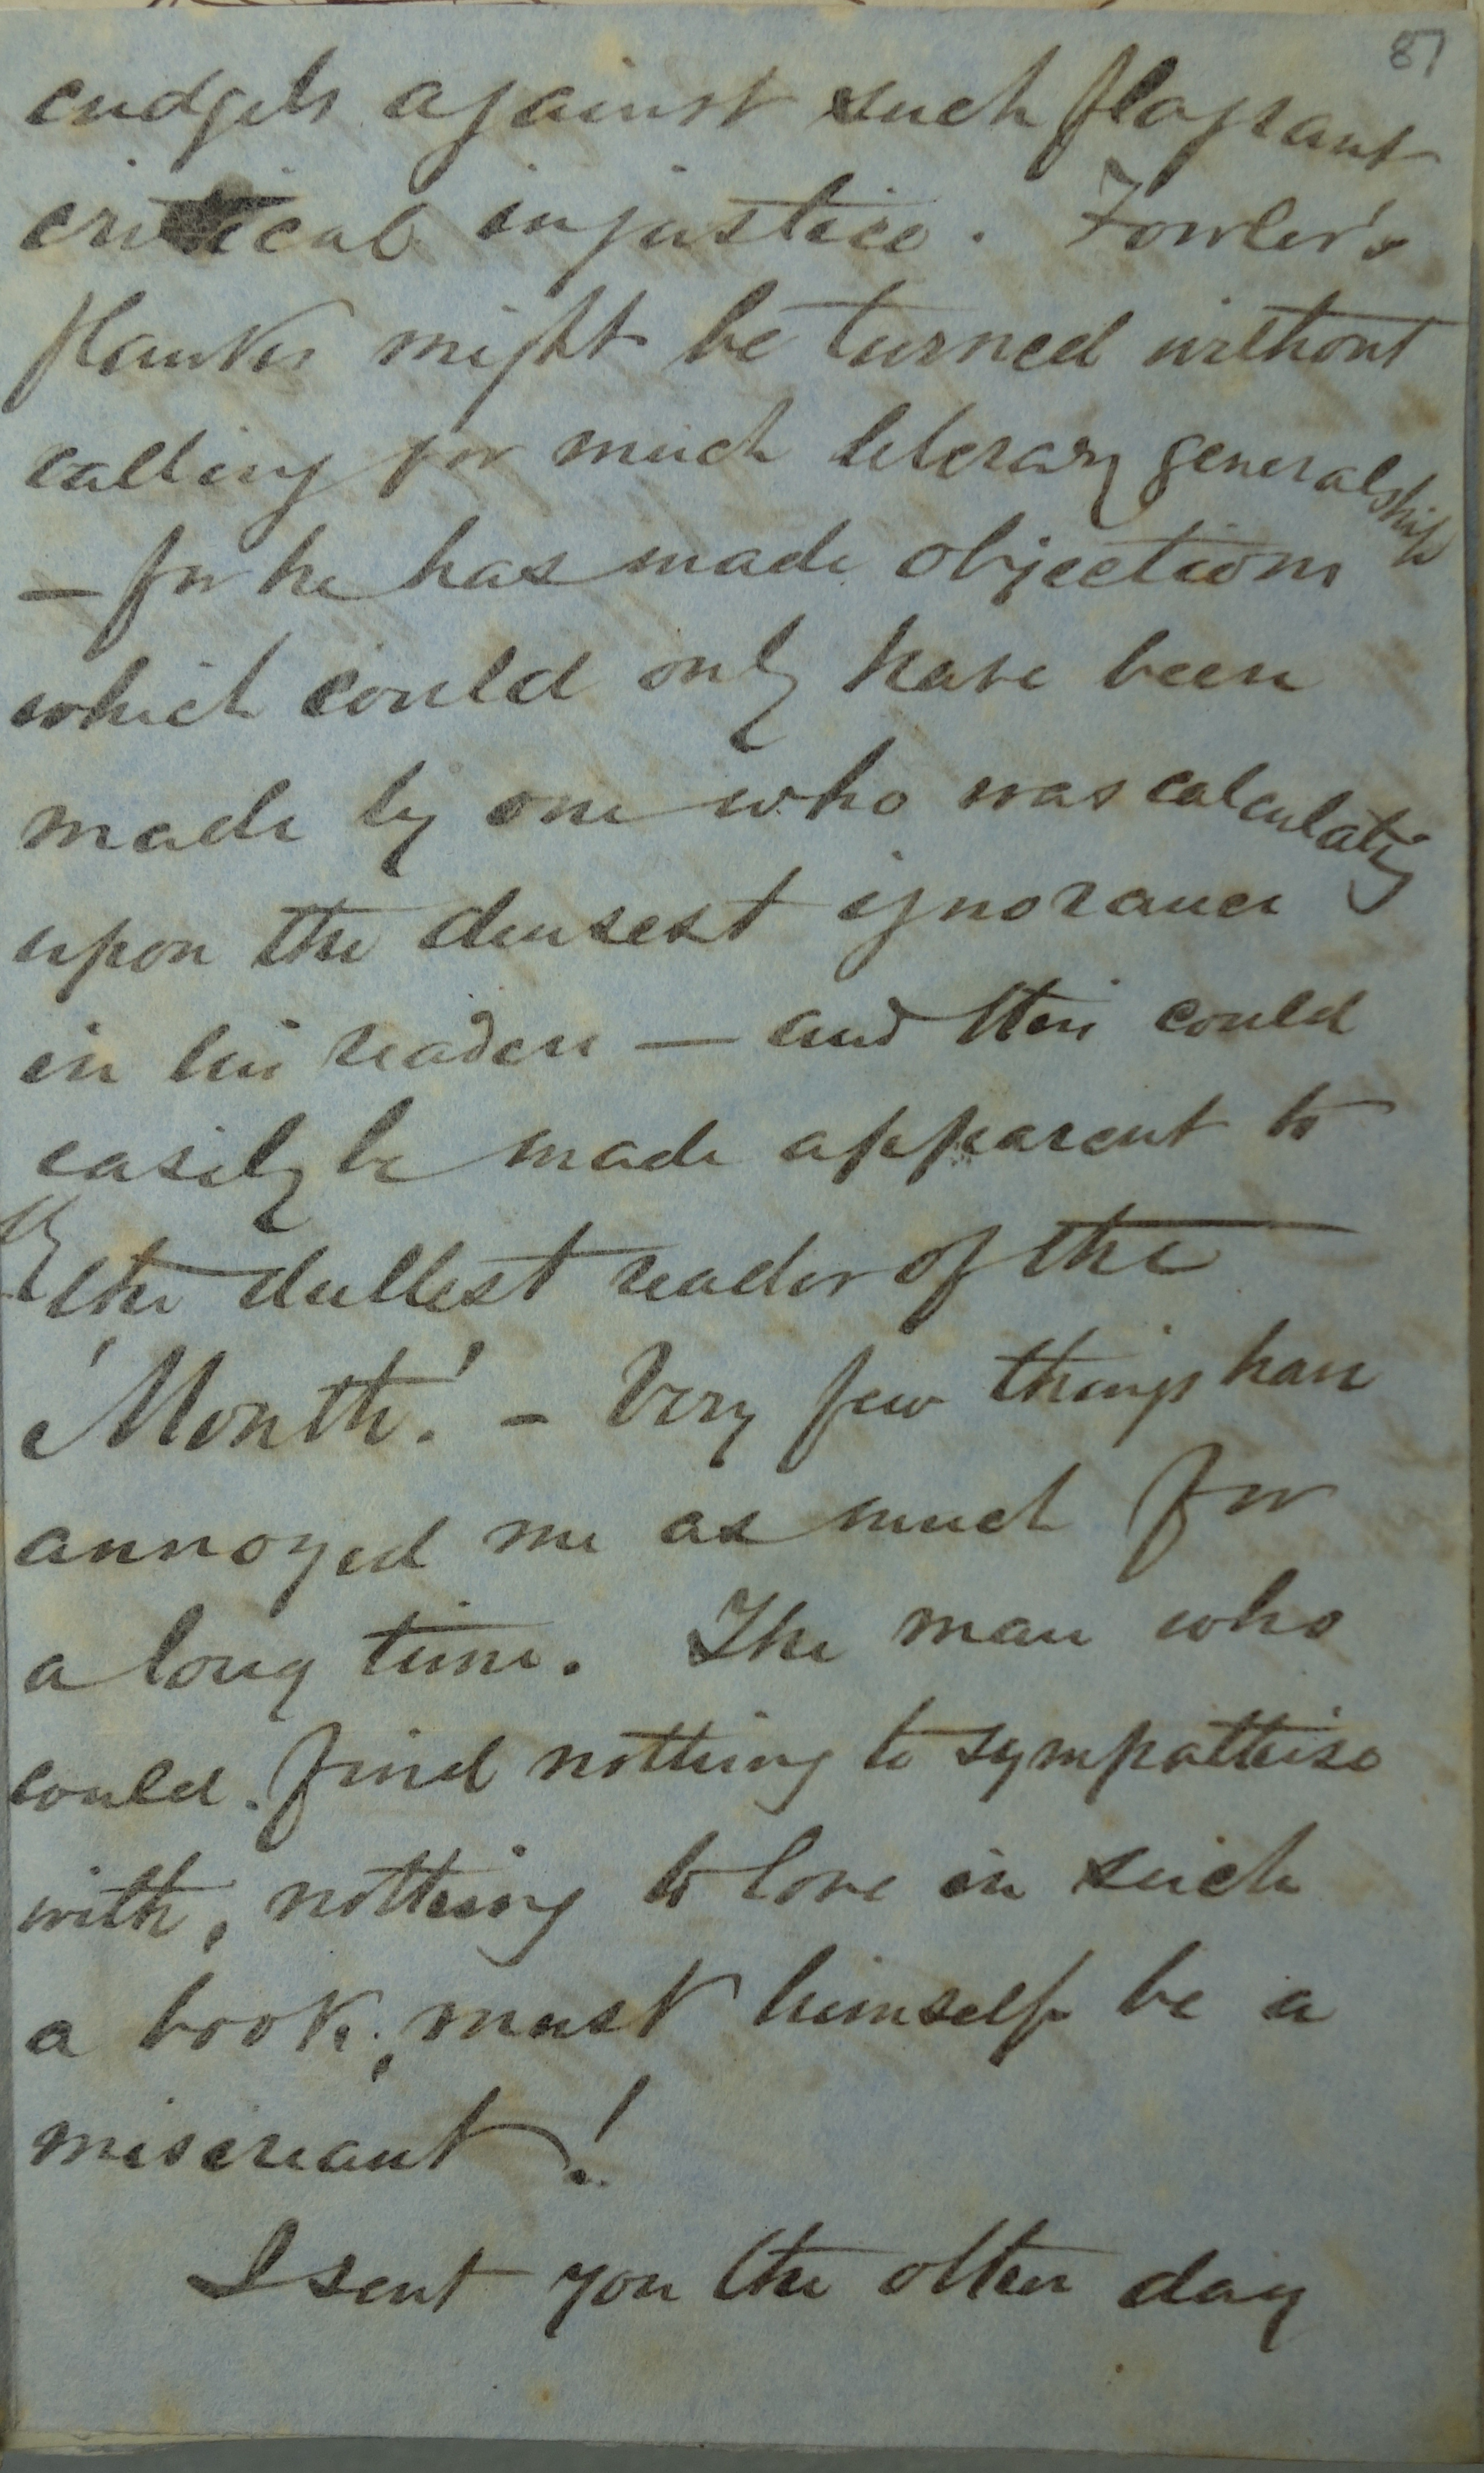 87
cudgels against such flagrant
critical injustice. Fowler's
flanks might be turned without
calling for much literary generalship
— for he has made objections
which could only have been
made by one who was calculatg
upon the densest ignorance
in his readers — and this could
easily be made apparent to
the dullest reader of the
'Month'. - Very few things have
annoyed me as much for
a long time. The man who
could find nothing to sympathise
with, nothing to love in such
a book, must himself be a
miscreant!
I sent you the other day